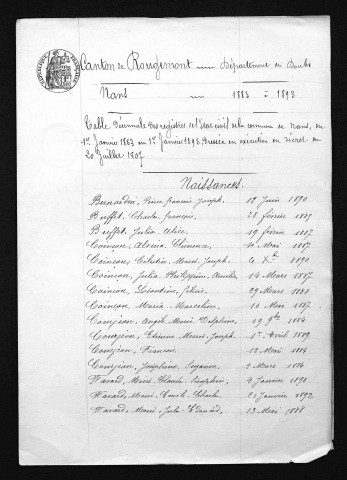 Canton de Rougemont Département du Doubs
Nans 1883 à 1893
Table décennale des registres de l'état civil de la commune de Nans, du
1er Janvier 1883 au 1er Janvier 1893 Dressée en exécution du Décret du
20 Juillet 1807.
Naissances.
Bernardin, Pierre françois Joseph. 12 Juin 1890
Buffet, Charles françois, 21 février 1889
Buffet, Julia Alice. 19 février 1887
Coinçon, Climena. 10 Mai 1887
Coinçon, Célestin Marie Joseph. 6 Xbre 1890
Coinçon, Julia Philippine Amélie 14 Mars 1887
Coinçon, Léontine, Célina. 29 Mars 1888
Coinçon Maria Marceline. 10 Mai 1887
Courjean, Angèle Marie Delphine, 19 9bre 1884
Courjean, Etienne Marie Joseph. 1er Avril 1889
Courjean, Francis 12 Mai 1884
Courjean, Joséphine Suzanne. 2 Mars 1886
Havard, Marie Blanche Joséphine. 4 Janvier 1892
Havard, Marie Emile Charles 21 Janvier 1892
Havard, Marie Jules Edouard, 13 Mai 1888